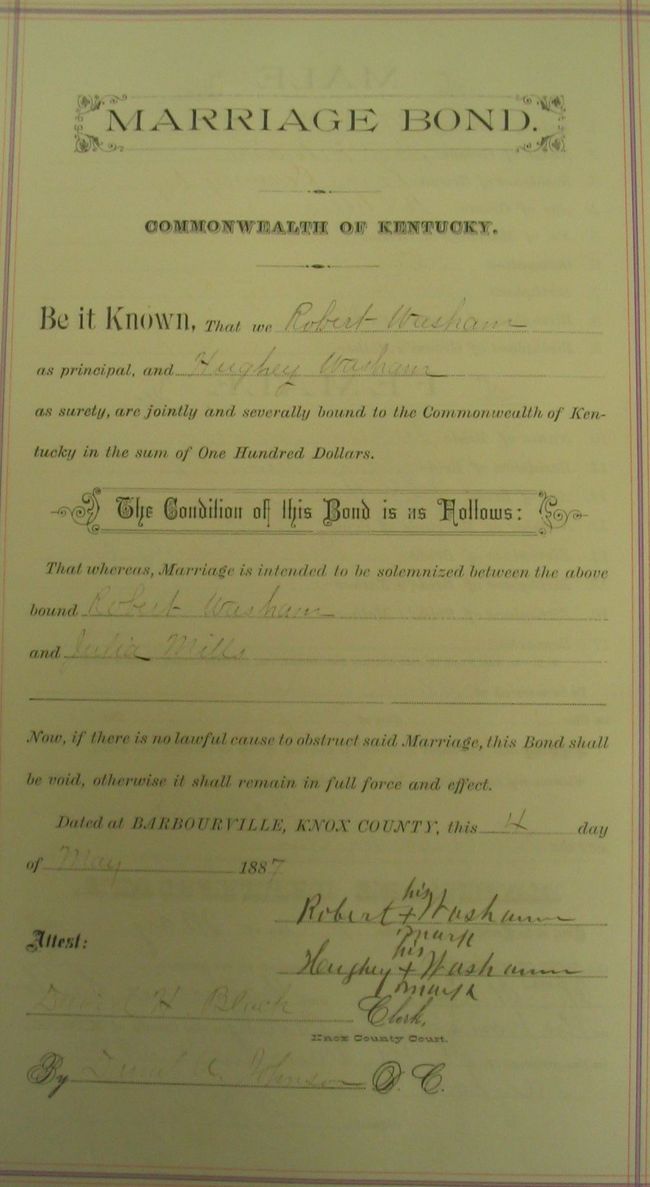 MARRIAGE BOND.
COMMONWEALTH OF KENTUCKY.
Be it Known, That we Robert Washam
as principal, and Hughey Washam
as surety, are jointly and severally bound to the Commonwealth of Ken-
tucky in the sum of One Hundred Dollars.
The Condition of this Bond is as Follows:
That whereas, Marriage is intended to be solemnized between the above
bound Robert Washam
and Julia Mills
Now, if there is no lawful cause to obstruct said Marriage, this Bond shall
be void, otherwise it shall remain in full force and effect.
Dated at BARBOURVILLE, KNOX COUNTY, this 4 day
of May 1887
his
Robert + Washam
mark
Attest:
his
Hughey + Washam
mark
H Black Clerk,
Knox County Court.
By Johnson D. C.